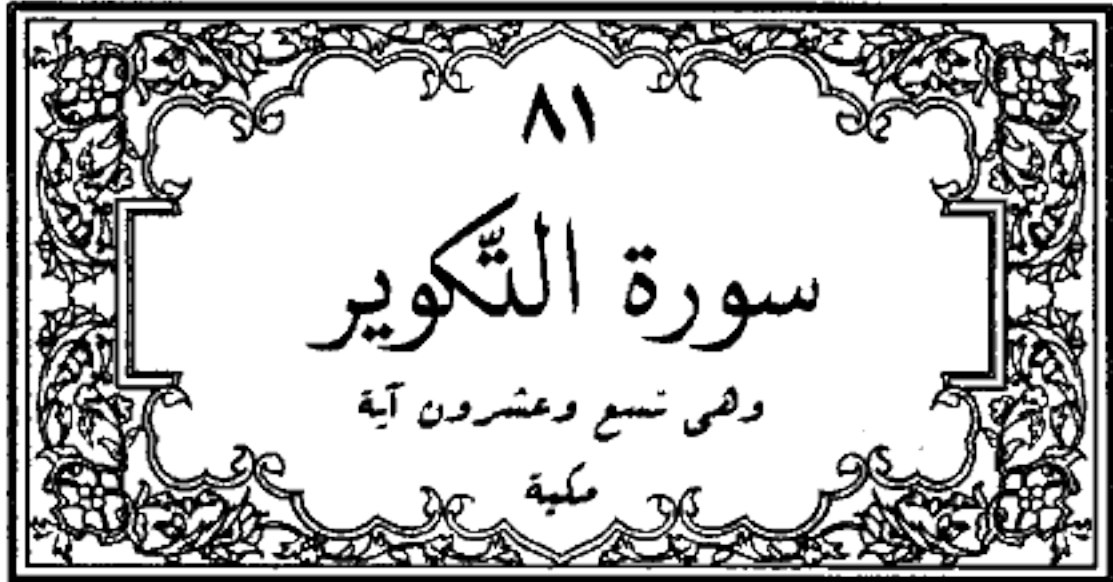 ٨١
سورة التّكوير
وهى تسع وعشرون آية
مكية